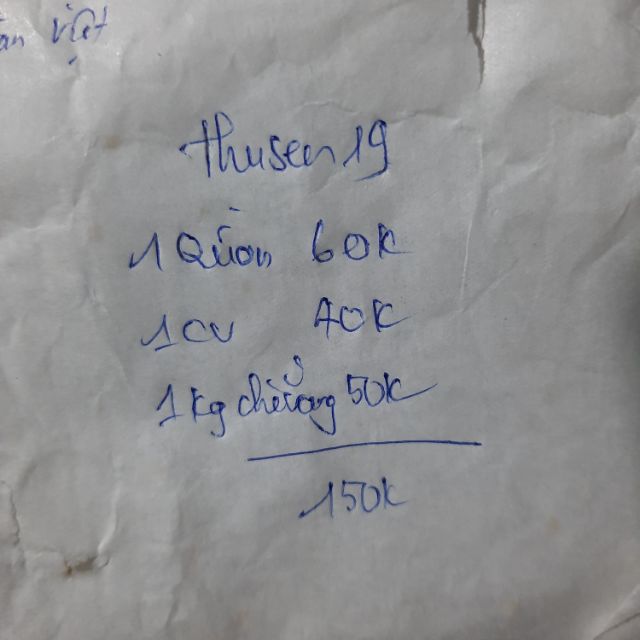 ăn Việt
thusen 19
1 Quần 60K
1 cv 40K
1 kg chẻ trong 50K
150K